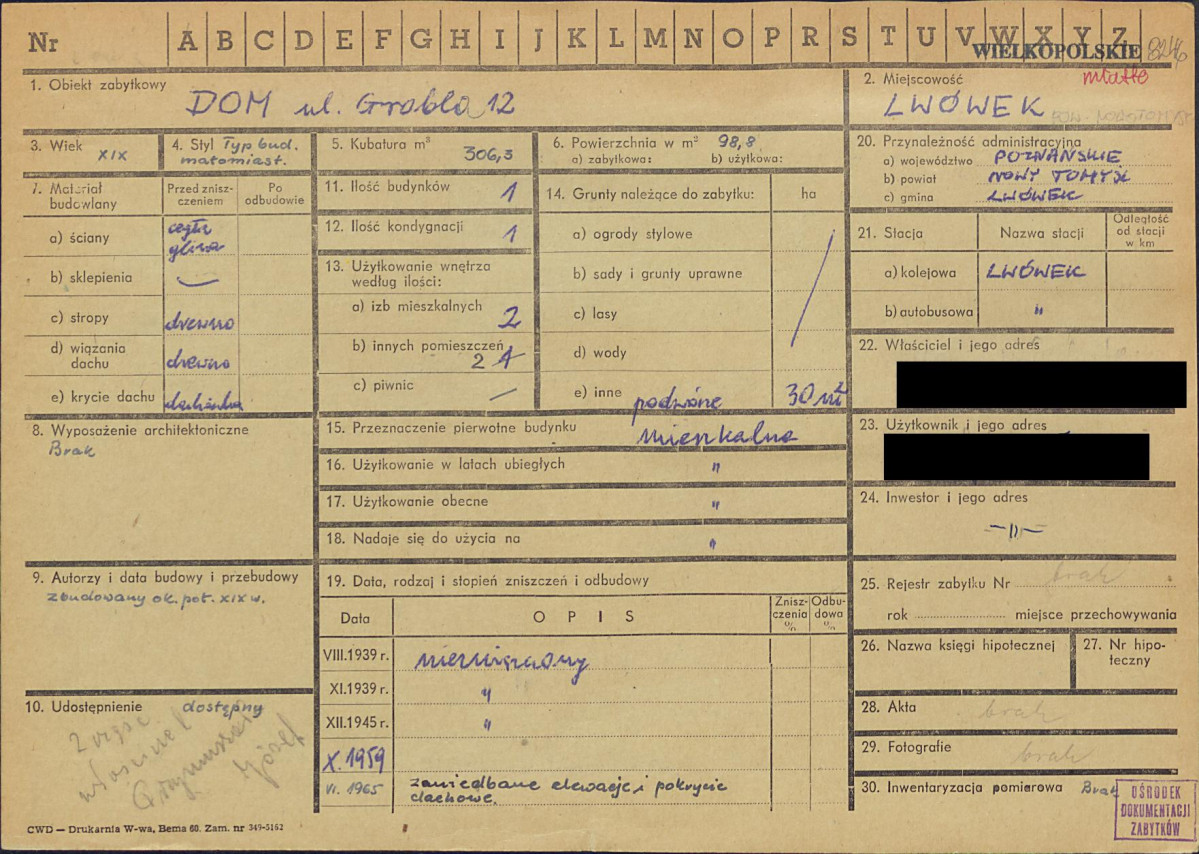 Nr A B C D E F G H I J K L M N O P R S T U V W X Y Z
WIELKOPOLSKIE 8246
miasto
1. Obiekt zabytkowy
DOM ul. Grobla 12
2. Miejscowość
LWÓWEK
POW. NOWOTOMYSKI
3. Wiek XIX
4. Styl Typ bud.
małomiast.
5. Kubatura m³ 306,3
6. Powierzchnia w m² 98,8
a) zabytkowa: b) użytkowa:
20. Przynależność administracyjna
a) województwo POZNAŃSKIE
b) powiat NOWY TOMYŚL
c) gmina LWÓWEK
7. Materiał budowlany
Przed zniszczeniem
Po odbudowie
a) ściany cegła
glina
b) sklepienia —
c) stropy drewno
d) wiązania dachu drewno
e) krycie dachu dachówka
11. Ilość budynków 1
12. Ilość kondygnacji 1
13. Użytkowanie wnętrza
według ilości:
a) izb mieszkalnych 2
b) innych pomieszczeń
2
c) piwnic —
14. Grunty należące do zabytku: ha
a) ogrody stylowe
b) sady i grunty uprawne
c) lasy
d) wody
e) inne podwórze 30 m²
21. Stacja Nazwa stacji Odległość
od stacji
w km
a) kolejowa LWÓWEK
b) autobusowa "
22. Właściciel i jego adres
23. Użytkownik i jego adres
24. Inwestor i jego adres
—"—
8. Wyposażenie architektoniczne
Brak
15. Przeznaczenie pierwotne budynku mieszkalne
16. Użytkowanie w latach ubiegłych "
17. Użytkowanie obecne "
18. Nadaje się do użycia na "
9. Autorzy i data budowy i przebudowy
zbudowany ok. poł. XIX w.
19. Data, rodzaj i stopień zniszczeń i odbudowy
Data OPIS Zniszczenia % Odbudowa %
VIII.1939 r. nieruszony
XI.1939 r. "
XII.1945 r. "
X.1959
VI. 1965 zaniedbane elewacje i pokrycie
dachowe.
10. Udostępnienie dostępny
właściciel
Józef
25. Rejestr zabytku Nr brak
rok miejsce przechowywania
26. Nazwa księgi hipotecznej
27. Nr hipoteczny
28. Akta brak
29. Fotografie brak
30. Inwentaryzacja pomiarowa Brak
OŚRODEK
DOKUMENTACJI
ZABYTKÓW
CWD — Drukarnia W-wa, Bema 60. Zam. nr 349-5162